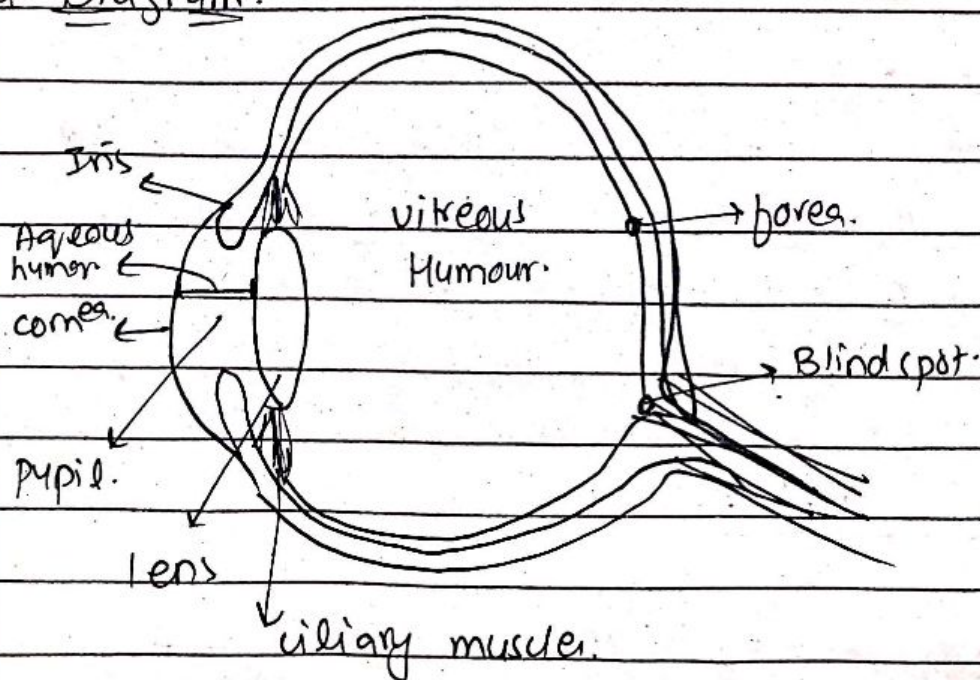 Diagram.
Iris
Aqeous
humor
cornea.
Pupil.
lens
ciliary muscles.
vitreous
Humour.
fovea.
Blind spot.